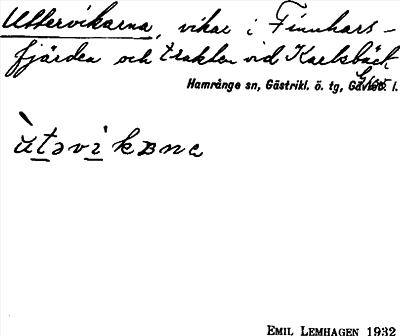 Uttervikarna, vikar i Finnhars-
fjärden och trakten vid Karlsbäck
Hamrånge sn, Gästrikl. ö. tg, Gävleb. l.
ùtəvikɐna
EMIL LEMHAGEN 1932